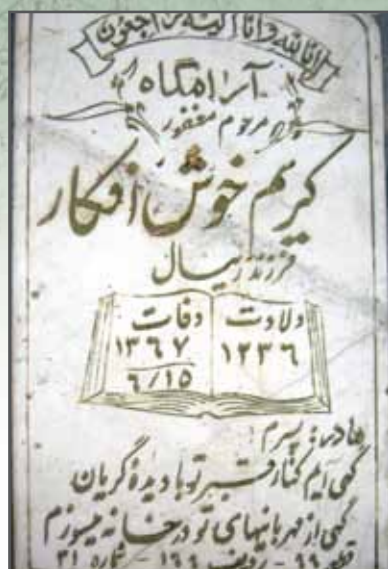 انا لله و انا الیه راجعون
آرامگاه
مرحوم مغفور
کریم خوش افکار
فرزند زیبال
ولادت وفات
۱۲۳۶ ۱۳۶۷
۶/۱۵
مادر: پسرم!
گهی آیم کنار قبر تو با دیدهٔ گریان
گهی از مهربانیهای تو در خانه میسوزم
قطعه ۹۹ - ردیف ۱۶۶ - شماره ۳۱